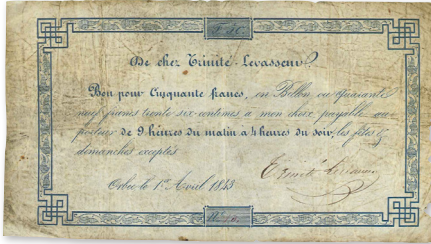 De chez Trinité-Levasseur
Bon pour Cinquante francs, en Billon ou quarante
neuf francs trente six centimes à mon choix, payable au
porteur de 9 heures du matin à 4 heures du soir, les fêtes &
dimanches exceptés
Orbec le 1er Avril 1843